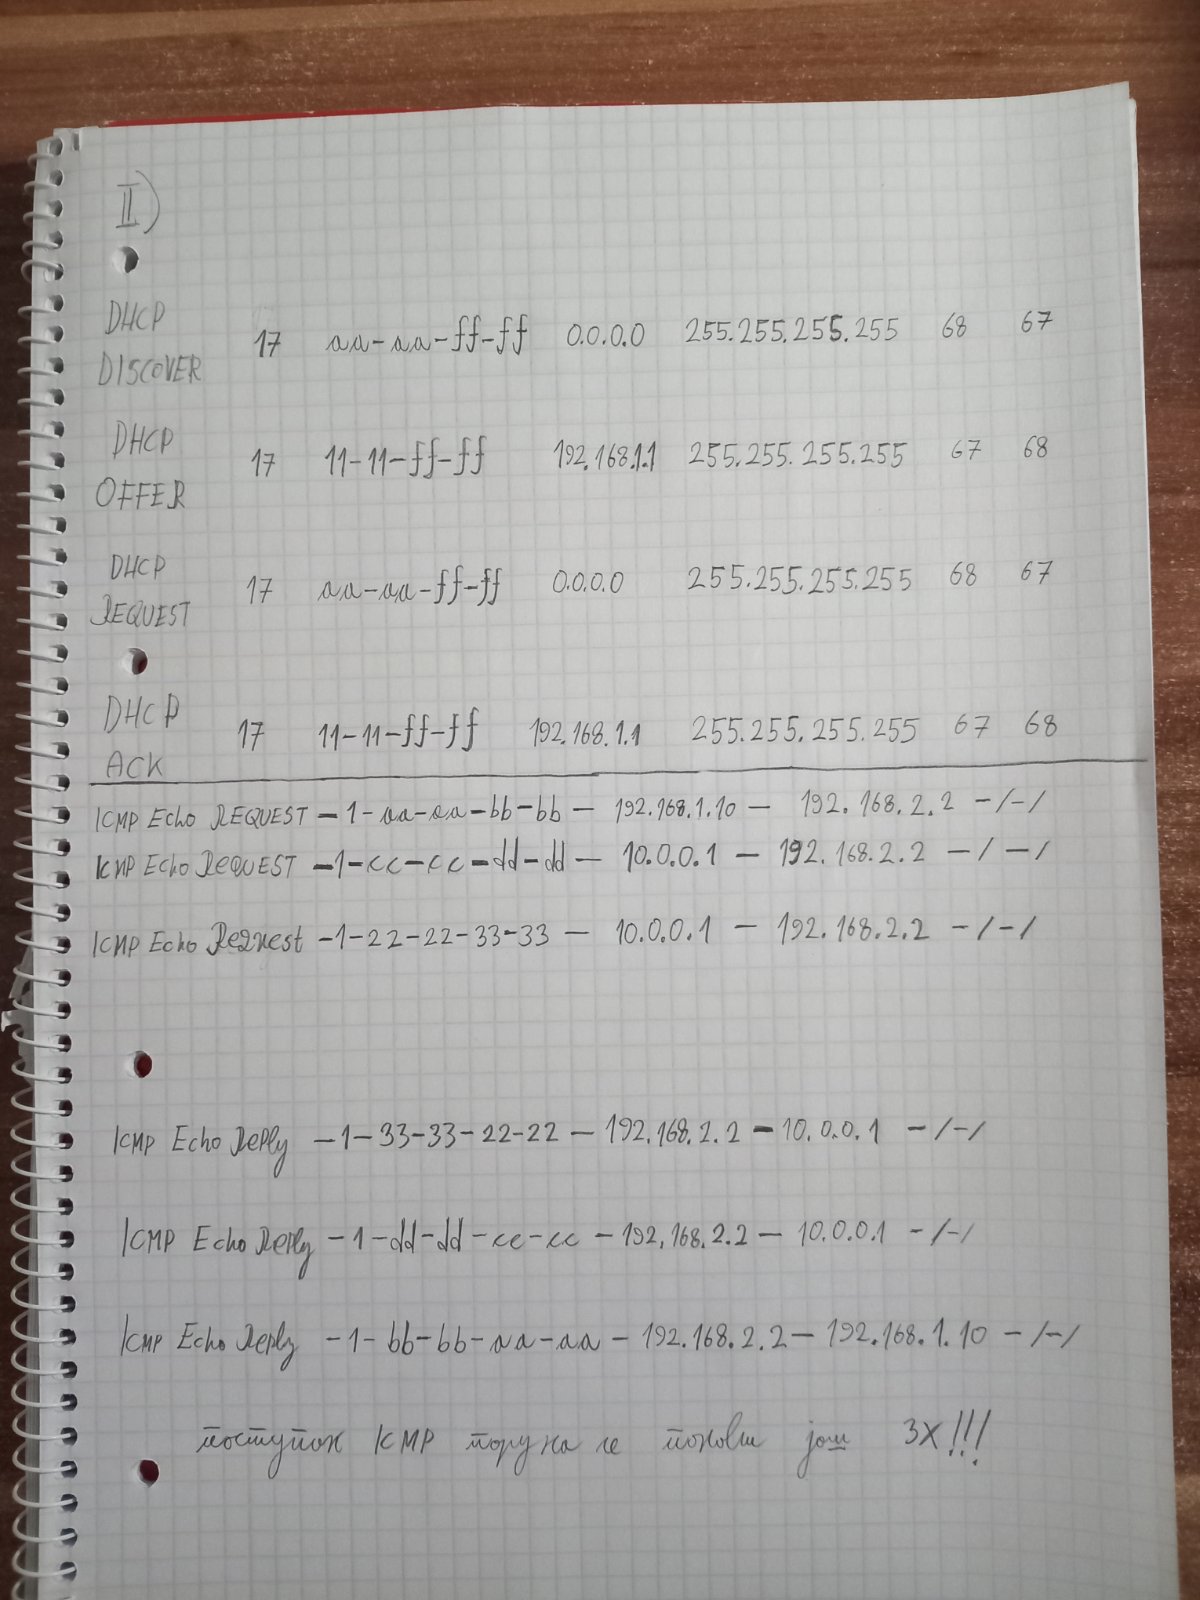 II)
DHCP DISCOVER 17 aa-aa-ff-ff 0.0.0.0 255.255.255.255 68 67
DHCP OFFER 17 11-11-ff-ff 192.168.1.1 255.255.255.255 67 68
DHCP REQUEST 17 aa-aa-ff-ff 0.0.0.0 255.255.255.255 68 67
DHCP ACK 17 11-11-ff-ff 192.168.1.1 255.255.255.255 67 68
ICMP Echo REQUEST - 1 - aa-aa-bb-bb - 192.168.1.10 - 192.168.2.2 -/-/
ICMP Echo REQUEST - 1 - cc-cc-dd-dd - 10.0.0.1 - 192.168.2.2 -/-/
ICMP Echo Request - 1 - 22-22-33-33 - 10.0.0.1 - 192.168.2.2 -/-/
ICMP Echo Reply - 1 - 33-33-22-22 - 192.168.2.2 - 10.0.0.1 -/-/
ICMP Echo Reply - 1 - dd-dd-cc-cc - 192.168.2.2 - 10.0.0.1 -/-/
ICMP Echo Reply - 1 - bb-bb-aa-aa - 192.168.2.2 - 192.168.1.10 -/-/
поступак ICMP порука се понови још 3X!!!